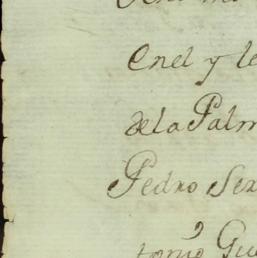 Enel y le
dela Palm
Pedro Sex
tonio Gu